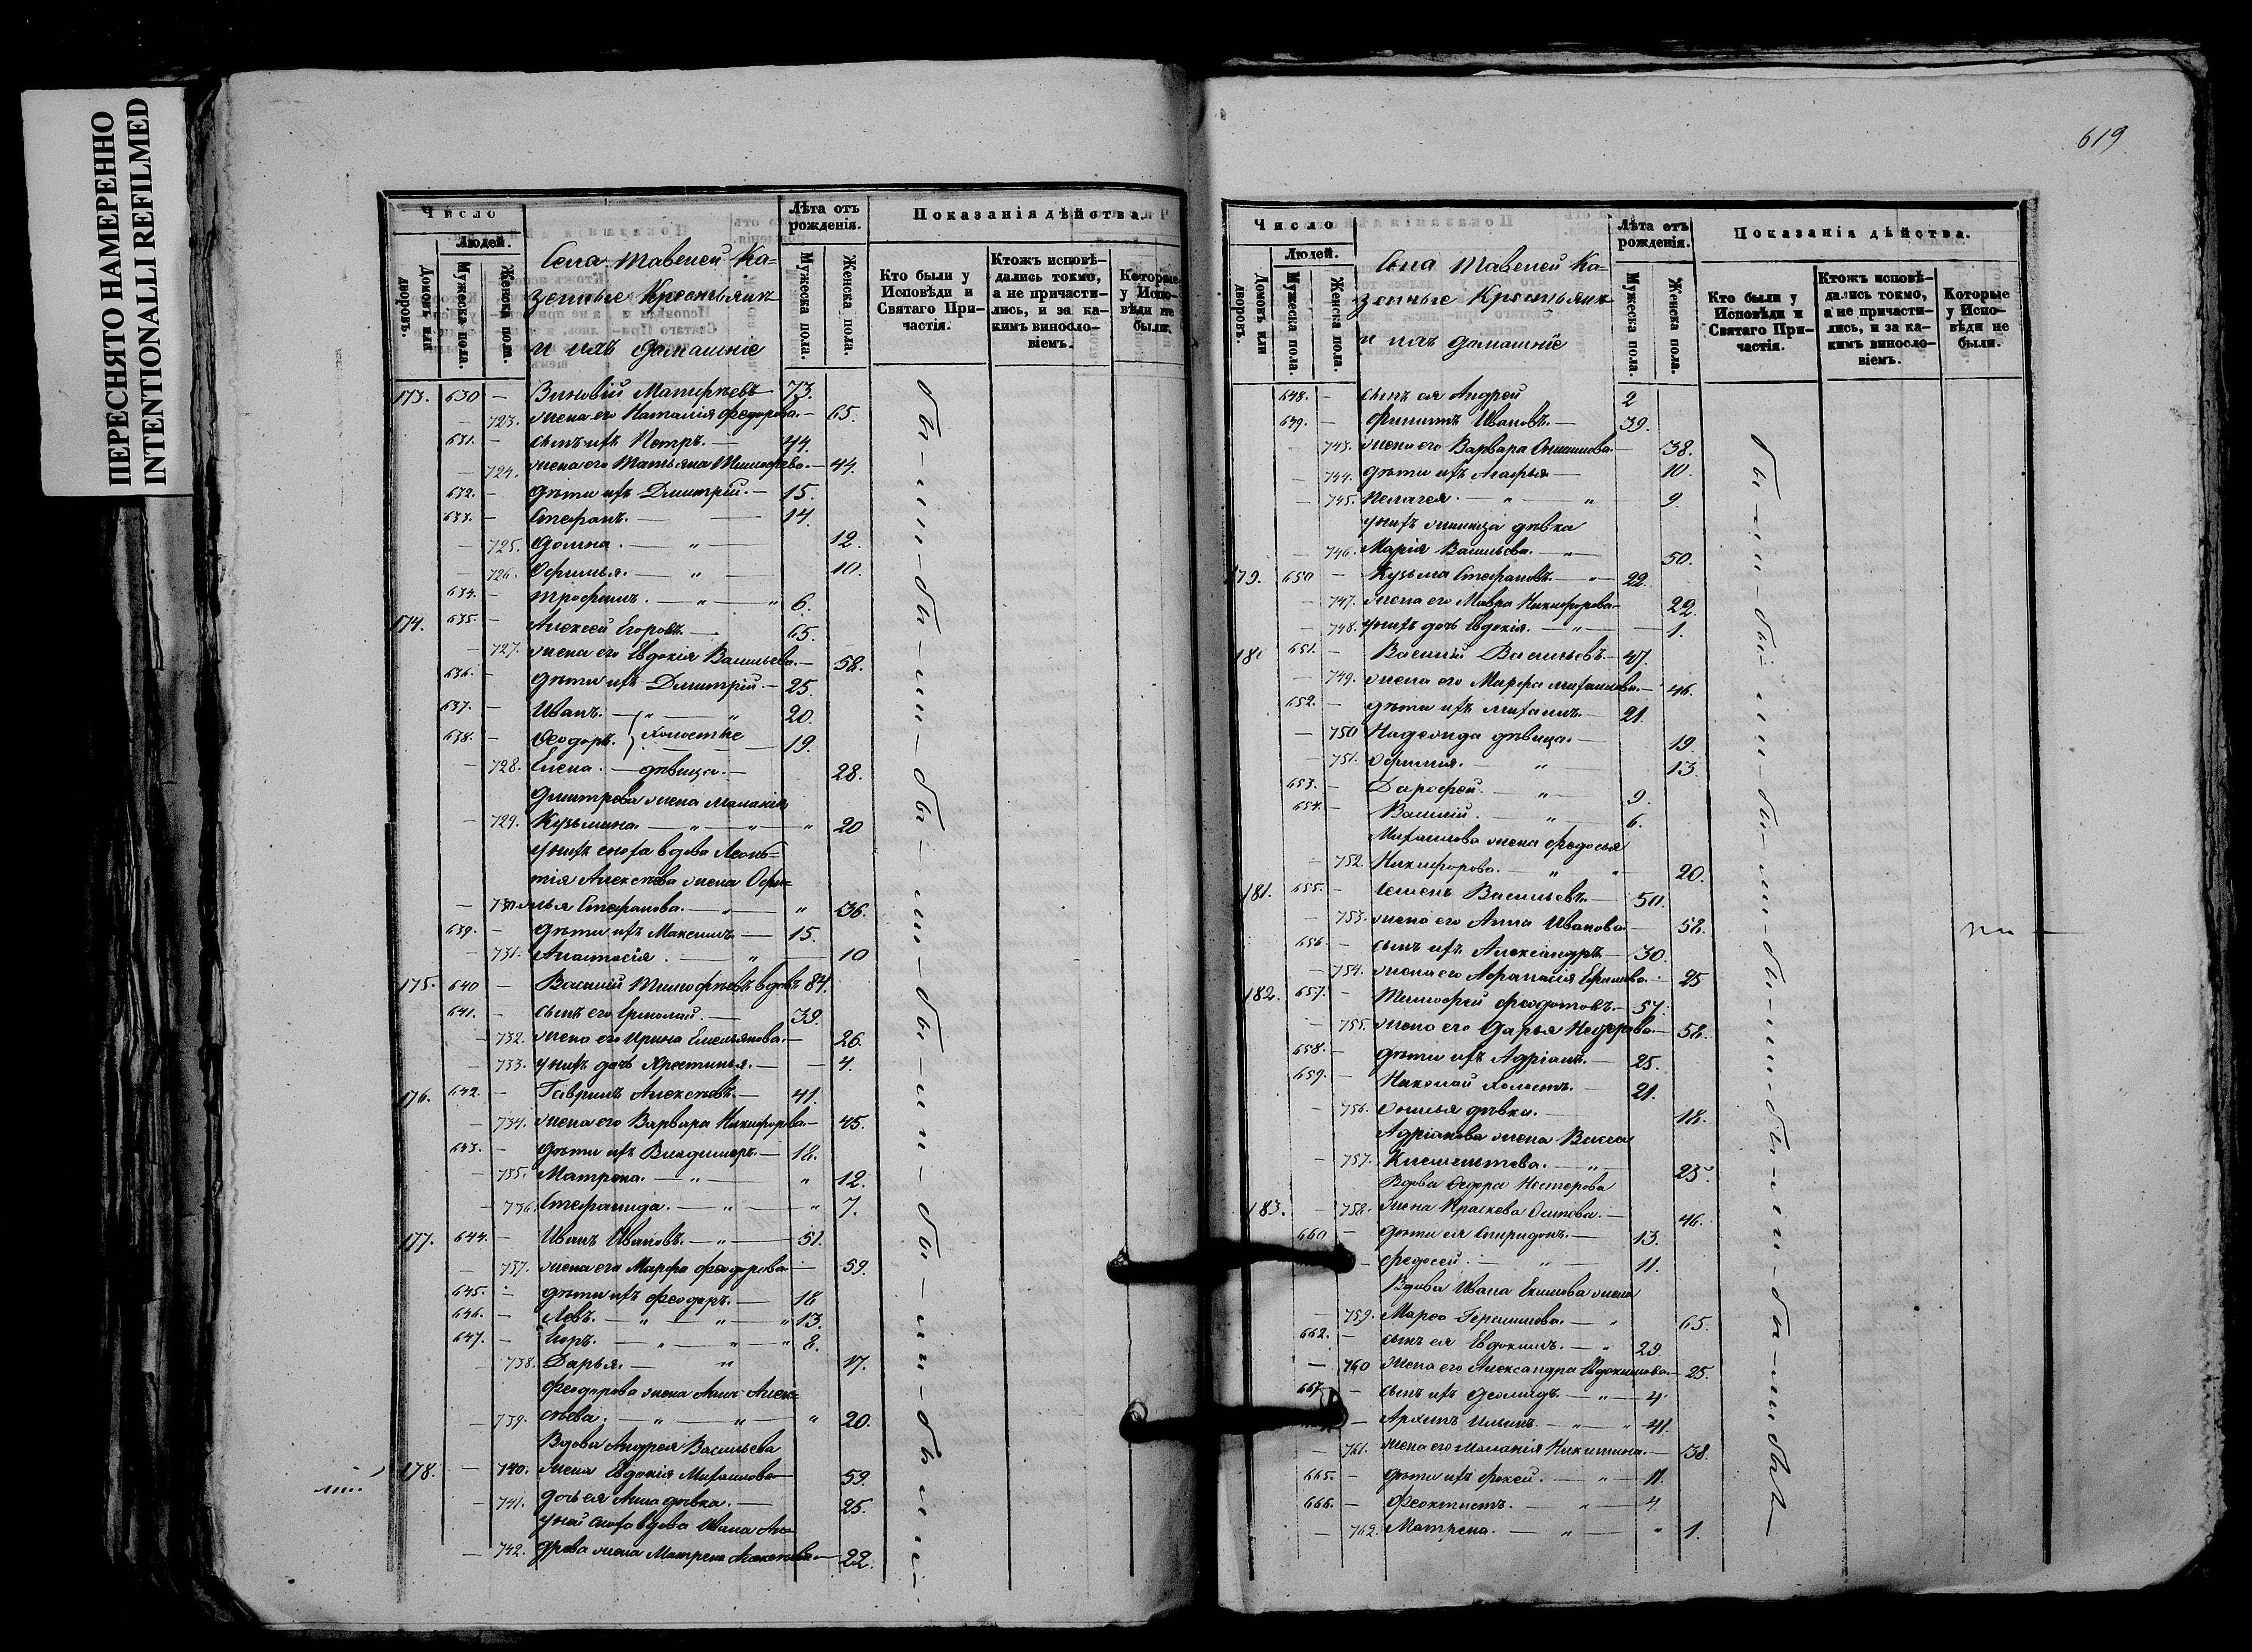 ПЕРЕСНЯТО НАМЕРЕННО
INTENTIONALLI REFILMED
619
Число
Людей.
Домовъ или дворовъ.
Мужеска пола.
Женска пола.
Села Тавелей Ка-
зенные Крестьяне
и ихъ домашніе
Лѣта отъ рожденія.
Мужеска пола.
Женска пола.
Показанія дѣйства.
Кто были у Исповѣди и Святаго Причастія.
Ктожъ исповѣдались токмо, а не причастились, и за какимъ винословіемъ.
Которые у Исповѣди не были.
173. 630 – Зиновій Матвѣевъ 73.
– 723. жена его Наталія Феодорова. – 65.
631. – сынъ ихъ Петръ. – 44.
– 724. жена его Татьяна Тимофеева. – 44.
632. – дѣти ихъ Димитрій. – 15.
633. – Стефанъ. – 14.
– 725. Домна. – „ – 12.
– 726. Офимья. – „ – 10.
634. – Трофимъ. – „ – „ 6.
174. 635. – Алексей Егоровъ. – 65.
– 727. жена его Евдокія Васильева. – 58.
636. – дѣти ихъ Димитрій. – 25.
637. – Иванъ. – „ – „ 20.
638. – Феодоръ. } холостые – 19.
– 728. Елена. – дѣвица. – 28.
Димитрева жена Маланія
– 729. Кузьмина. – „ – „ – „ 20
у нихъ сноха вдова Леон=
тія Алексѣева жена Офи=
– 730. мья Стефанова. – „ – „ 36.
639. – дѣти ихъ Максимъ. – 15.
– 731. Анастасія. – „ – 10
175. 640 – Василій Тимофѣевъ вдовъ 84.
641. – сынъ его Ермолай. – 39.
– 732. жена его Ирина Емельянова. – 26.
– 733. у нихъ дочь Хрестинья. – – 4.
176. 642. – Гаврилъ Алексѣевъ. – 41.
– 734. жена его Варвара Никифорова. – 45.
643. – дѣти ихъ Владимеръ. – 18.
– 735. Матрена. – „ – „ 12.
– 736. Стефанида. – „ – „ 7.
177. 644. – Иванъ Ивановъ. – „ – 51.
– 737. жена его Марфа Феодорова – 59.
645. – дѣти ихъ Феодоръ. – 18
646. – Левъ. – „ – „ – „ 13.
647. – Егоръ. – „ – „ – „ 8.
– 738. Дарья. – „ 17.
Феодорова жена Анна Алек=
– 739. сѣева. – „ – „ – „ 20.
Вдова Андрея Васильева
178. – 740. жена Евдокія Михаилова – 59.
– 741. дочь ея Анна дѣвка. – 25.
у ней сноха вдова Ивана Ан=
– 742. дреева жена Матрена Алексѣева – 22.
Число
Людей.
Домовъ или дворовъ.
Мужеска пола.
Женска пола.
Села Тавелей Ка-
зенные Крестьяне
и ихъ домашніе
Лѣта отъ рожденія.
Мужеска пола.
Женска пола.
Показанія дѣйства.
Кто были у Исповѣди и Святаго Причастія.
Ктожъ исповѣдались токмо, а не причастились, и за какимъ винословіемъ.
Которые у Исповѣди не были.
648. – сынъ ея Андрей 2
649. – Филипъ Ивановъ. – 39.
– 743. жена его Варвара – 38.
– 744. дѣти ихъ Агафья – 10.
– 745. Пелагея. – „ – „ 9.
у нихъ дѣвка
– 746. Марія Васильева. – „ – 50.
179. 650 – Кузьма Стефановъ. – „ – 22.
– 747. жена его Мавра Никифорова – 22.
– 748. у нихъ дочь Евдокія. – „ – – 1.
180 651. – Василій Васильевъ. – 47.
– 749. жена его Марфа Михаилова. – 46.
652. – дѣти ихъ Михаилъ. – 21.
– 750 Надежда дѣвица. – 19.
– 751. Офимия. – „ 13.
653. – Дарофей. – „ – 9.
654. – Василій. – „ – 6.
Михаилова жена Федосья
– 752. Никифорова. – „ – „ 20.
181. 655. – Семенъ Васильевъ. – 50.
– 753. жена его Анна Иванова – 58.
656 – сынъ ихъ Александръ – 30.
– 754. жена его Афанасія Ефимова. – 25
182. 657. – Тимофей Федотовъ. – 57.
– 755. жена его Дарья – 58.
658. – дѣти ихъ Адріанъ. – 25.
659. – Николай холостъ. – 21.
– 756. дѣвка. – 18.
Адріанова жена Васса
– 757. Климентьева. – „ – 25.
Вдова Федора Нестерова
183. – 758. жена Праскева Осипова. – 46.
660 – дѣти ея Спиридонъ. – 13.
– Федосей. – „ – 11.
Вдова Ивана Екимова жена
– 759. Марфа Герасимова. – „ 65.
662. – сынъ ея Евдокимъ. – „ 29.
– 760 жена его Александра Евдокимова – 25.
667 – сынъ ихъ – „ – 4
– Архипъ Ильинъ. – „ – „ 41.
– 761. жена его Маланія Никитина. – 38.
665. – дѣти ихъ – „ – 11.
666. – Феоктистъ. – „ – 4.
– 762. Матрена. – „ – „ 1.